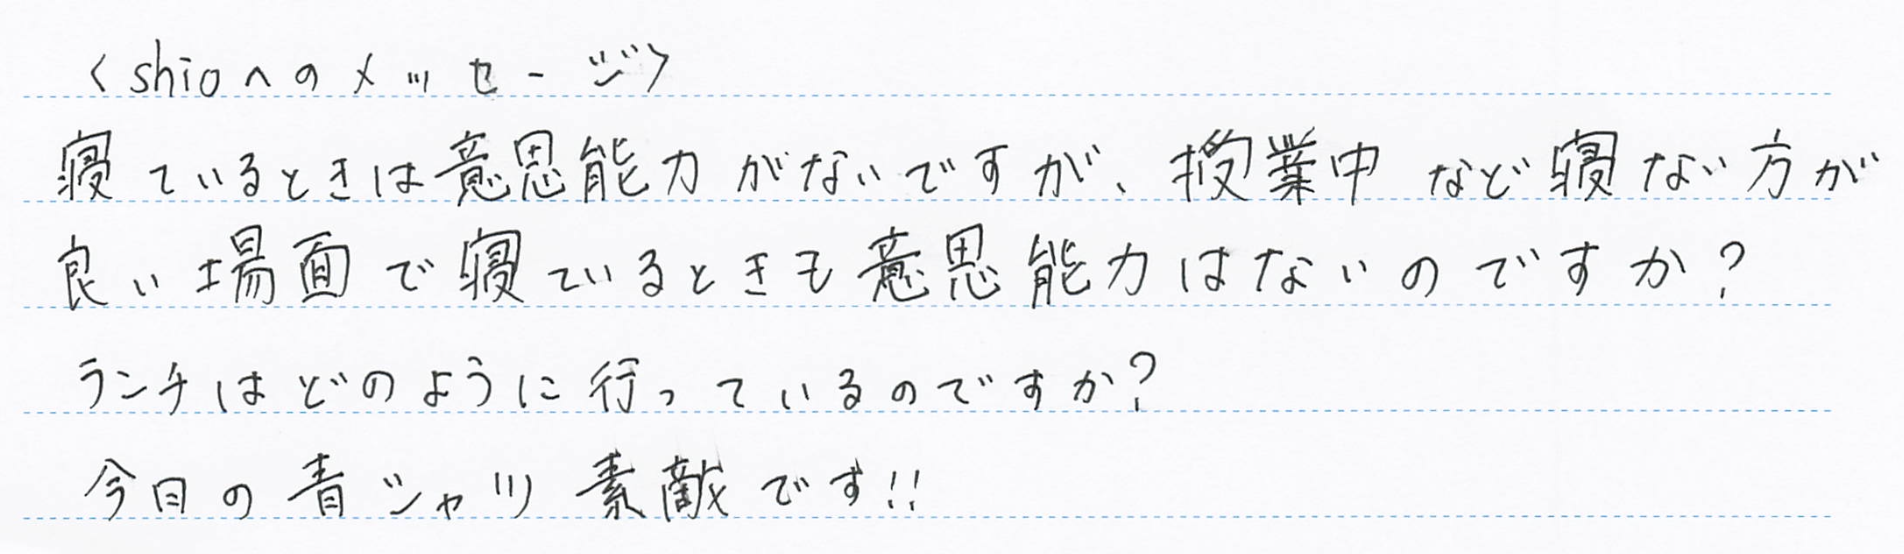 <shioへのメッセージ>
寝ているときは意思能力がないですが、授業中など寝ない方が
良い場面で寝ているときも意思能力はないのですか?
ランチはどのように行っているのですか?
今日の青シャツ素敵です!!